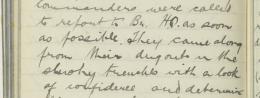 commanders were called
to report to Bn. HQ. as soon
as possible. They came along
from their dugouts in the
trenches with a look
of confidence and determin